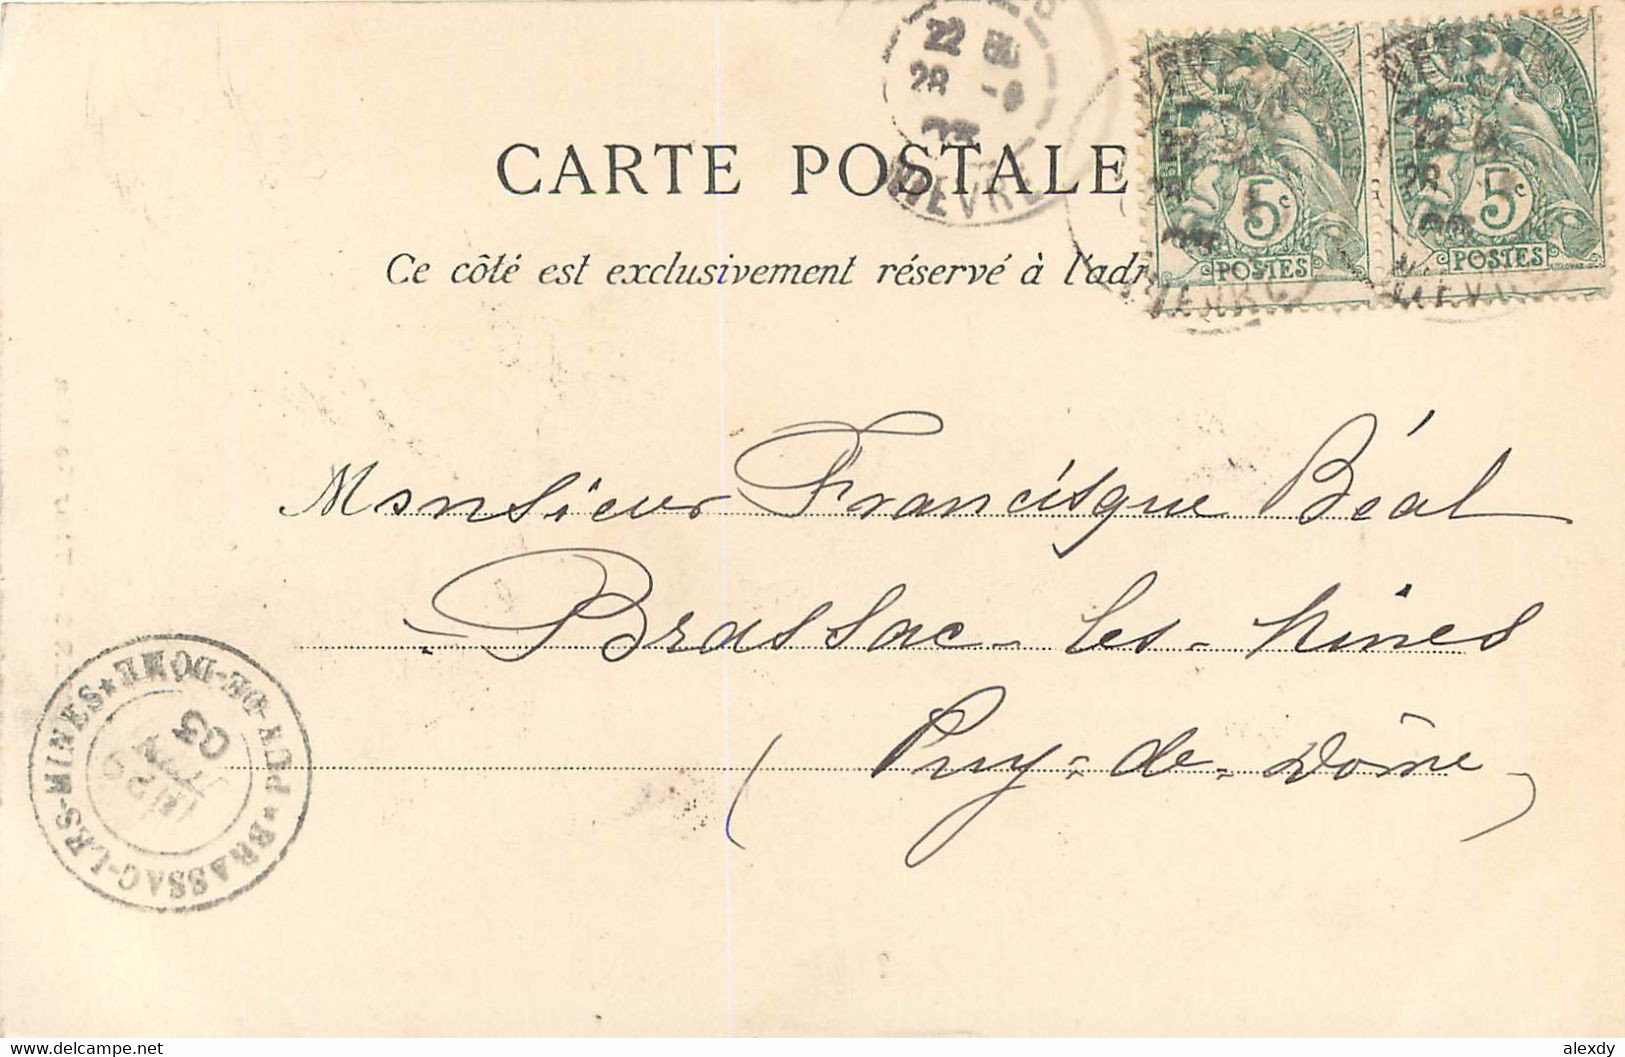 CARTE POSTALE
Ce côté est exclusivement réservé à l'adr
NIÈVRE
22
28
FRANÇAISE
5c
POSTES
FRANÇAISE
5c
POSTES
NEVERS
Monsieur Francisque Béal
Brassac-les-Mines
(Puy-de-Dôme)
BRASSAC-LES-MINES * PUY-DE-DOME *
03
alexdy